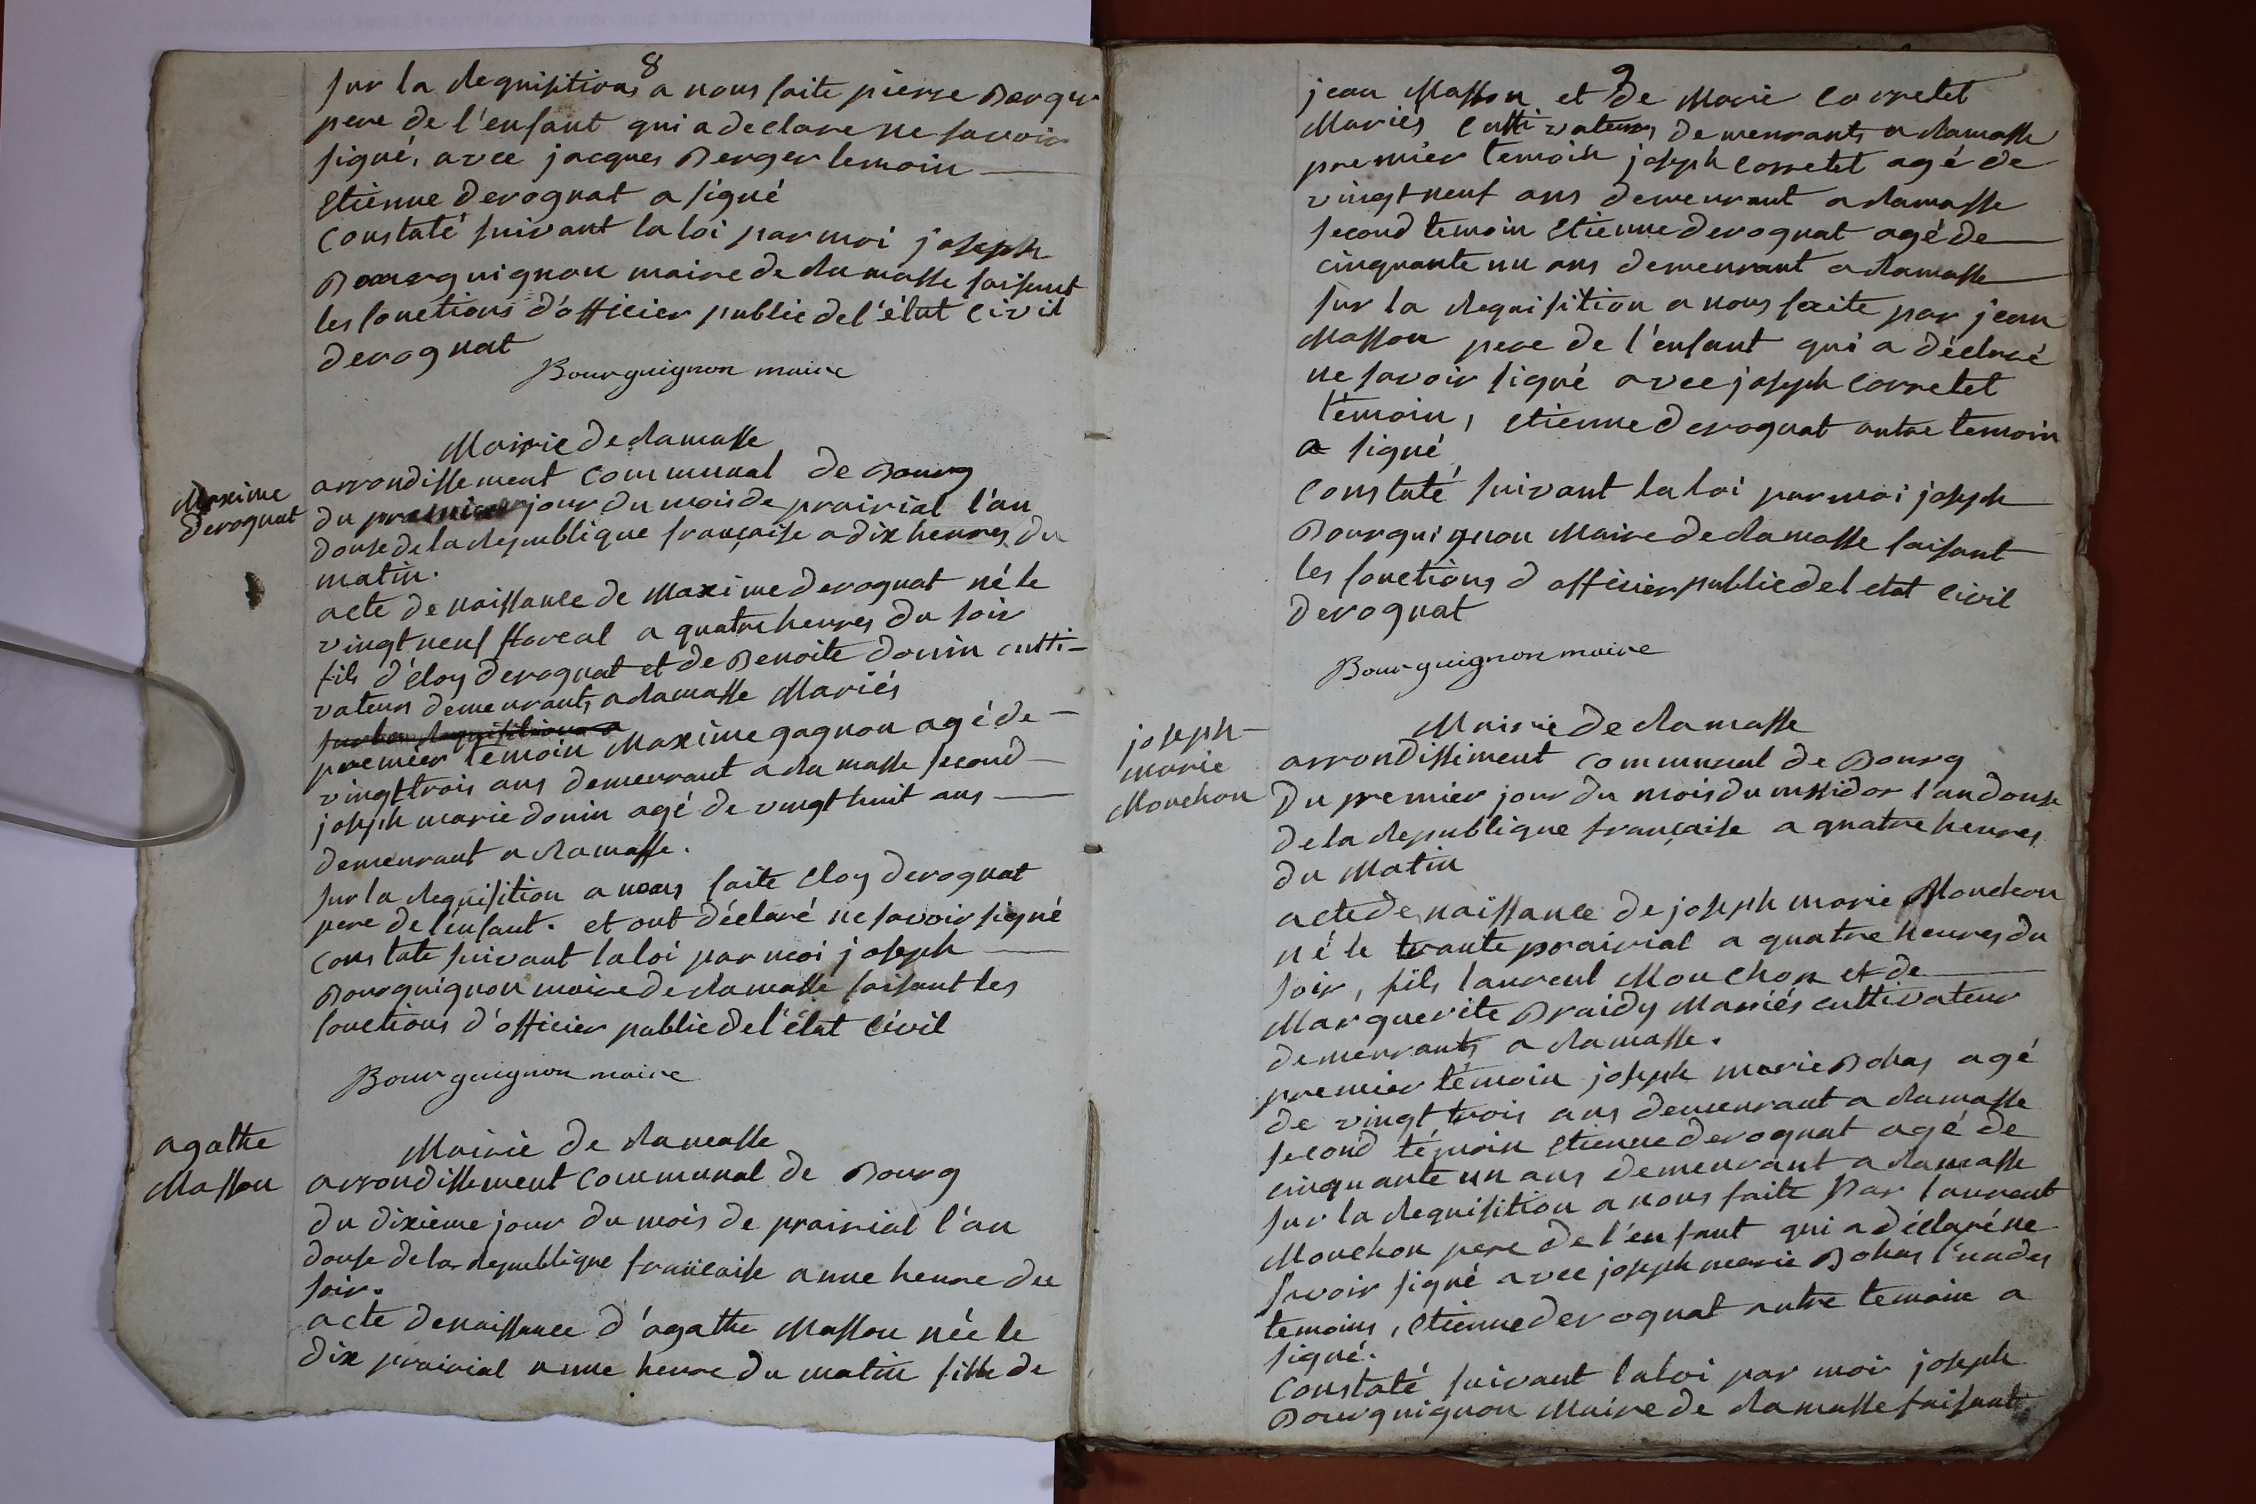 8
sur la requisitions a nous faite pierre Berger
pere de l'enfant qui a declare ne savoir
signé, avec jacques Berger temoin
etienne derognat a signé
Constaté suivant la loi par moi joseph
Bourguignon maire de ramasse faisant
les fonctions d'officier public de l'état civil
derognat
Bourguignon maire
Mairie de ramasse
arrondissement communal de Bourg
Maxime
derognat
du premier jour du mois de prairial l'an
douse de la republique française a dix heures du
matin.
acte de naissance de Maxime derognat né le
vingt neuf floreal a quatre heures du soir
fils d'éloy derognat et de Benoite donin culti-
vateurs demeurants a ramasse Mariés
sur la requisition a
premier temoin Maxime gagnon agé de
vingt trois ans demeurant a ra masse second
joseph marie donin agé de vingt huit ans
demeurant a ramasse.
sur la requisition a nous faite éloy derognat
pere de l'enfant. et ont déclaré ne savoir signé
constate suivant la loi par moi joseph
Bourguignon maire de ramasse faisant les
fonctions d'officier public de l'état civil
Bourguignon maire
agathe
Masson
Mairie de ramasse
arrondissement communal de Bourg
du dixième jour du mois de prairial l'an
douse de la republique française a une heure du
soir.
acte de naissance d'agathe Masson née le
dix prairial a une heure du matin fille de
9
jean Masson et de Marie Corretet
Mariés cultivateurs demeurants a ramasse
premier temoin joseph corretet agé de
vingt neuf ans demeurant a ramasse
second temoin etienne derognat agé de
cinquante un ans demeurant a ramasse
sur la requisition a nous faite par jean
Masson pere de l'enfant qui a déclaré
ne savoir signé avec joseph corretet
témoin, etienne derognat autre temoin
a signé
constaté suivant la loi par moi joseph
Bourguignon Maire de ramasse faisant
les fonctions d officier public de l etat civil
derognat
Bourguignon maire
joseph-
marie
Mouchon
Mairie de ramasse
arrondissiment communal de Bourg
Du premier jour du mois du messidor l'an douse
de la republique française a quatre heures
du Matin
acte de naissance de joseph marie Mouchon
né le trante prairial a quatre heures du
soir, fils laurent Mouchon et de
Marguerite Braidy Mariés cultivateur
demeurants a ramasse.
premier témoin joseph marie Bohas agé
de vingt trois ans demeurant a ramasse
second témoin etienne derognat agé de
cinquante un ans demeurant a ramasse
sur la requisition a nous faite par laurent
Mouchon pere de l'enfant qui a déclaré ne
savoir signé avec joseph marie Bohas l'un des
temoins, etienne derognat autre temoin a
signé.
Constaté suivant la loi par moi joseph
Bourguignon Maire de ramasse faisant